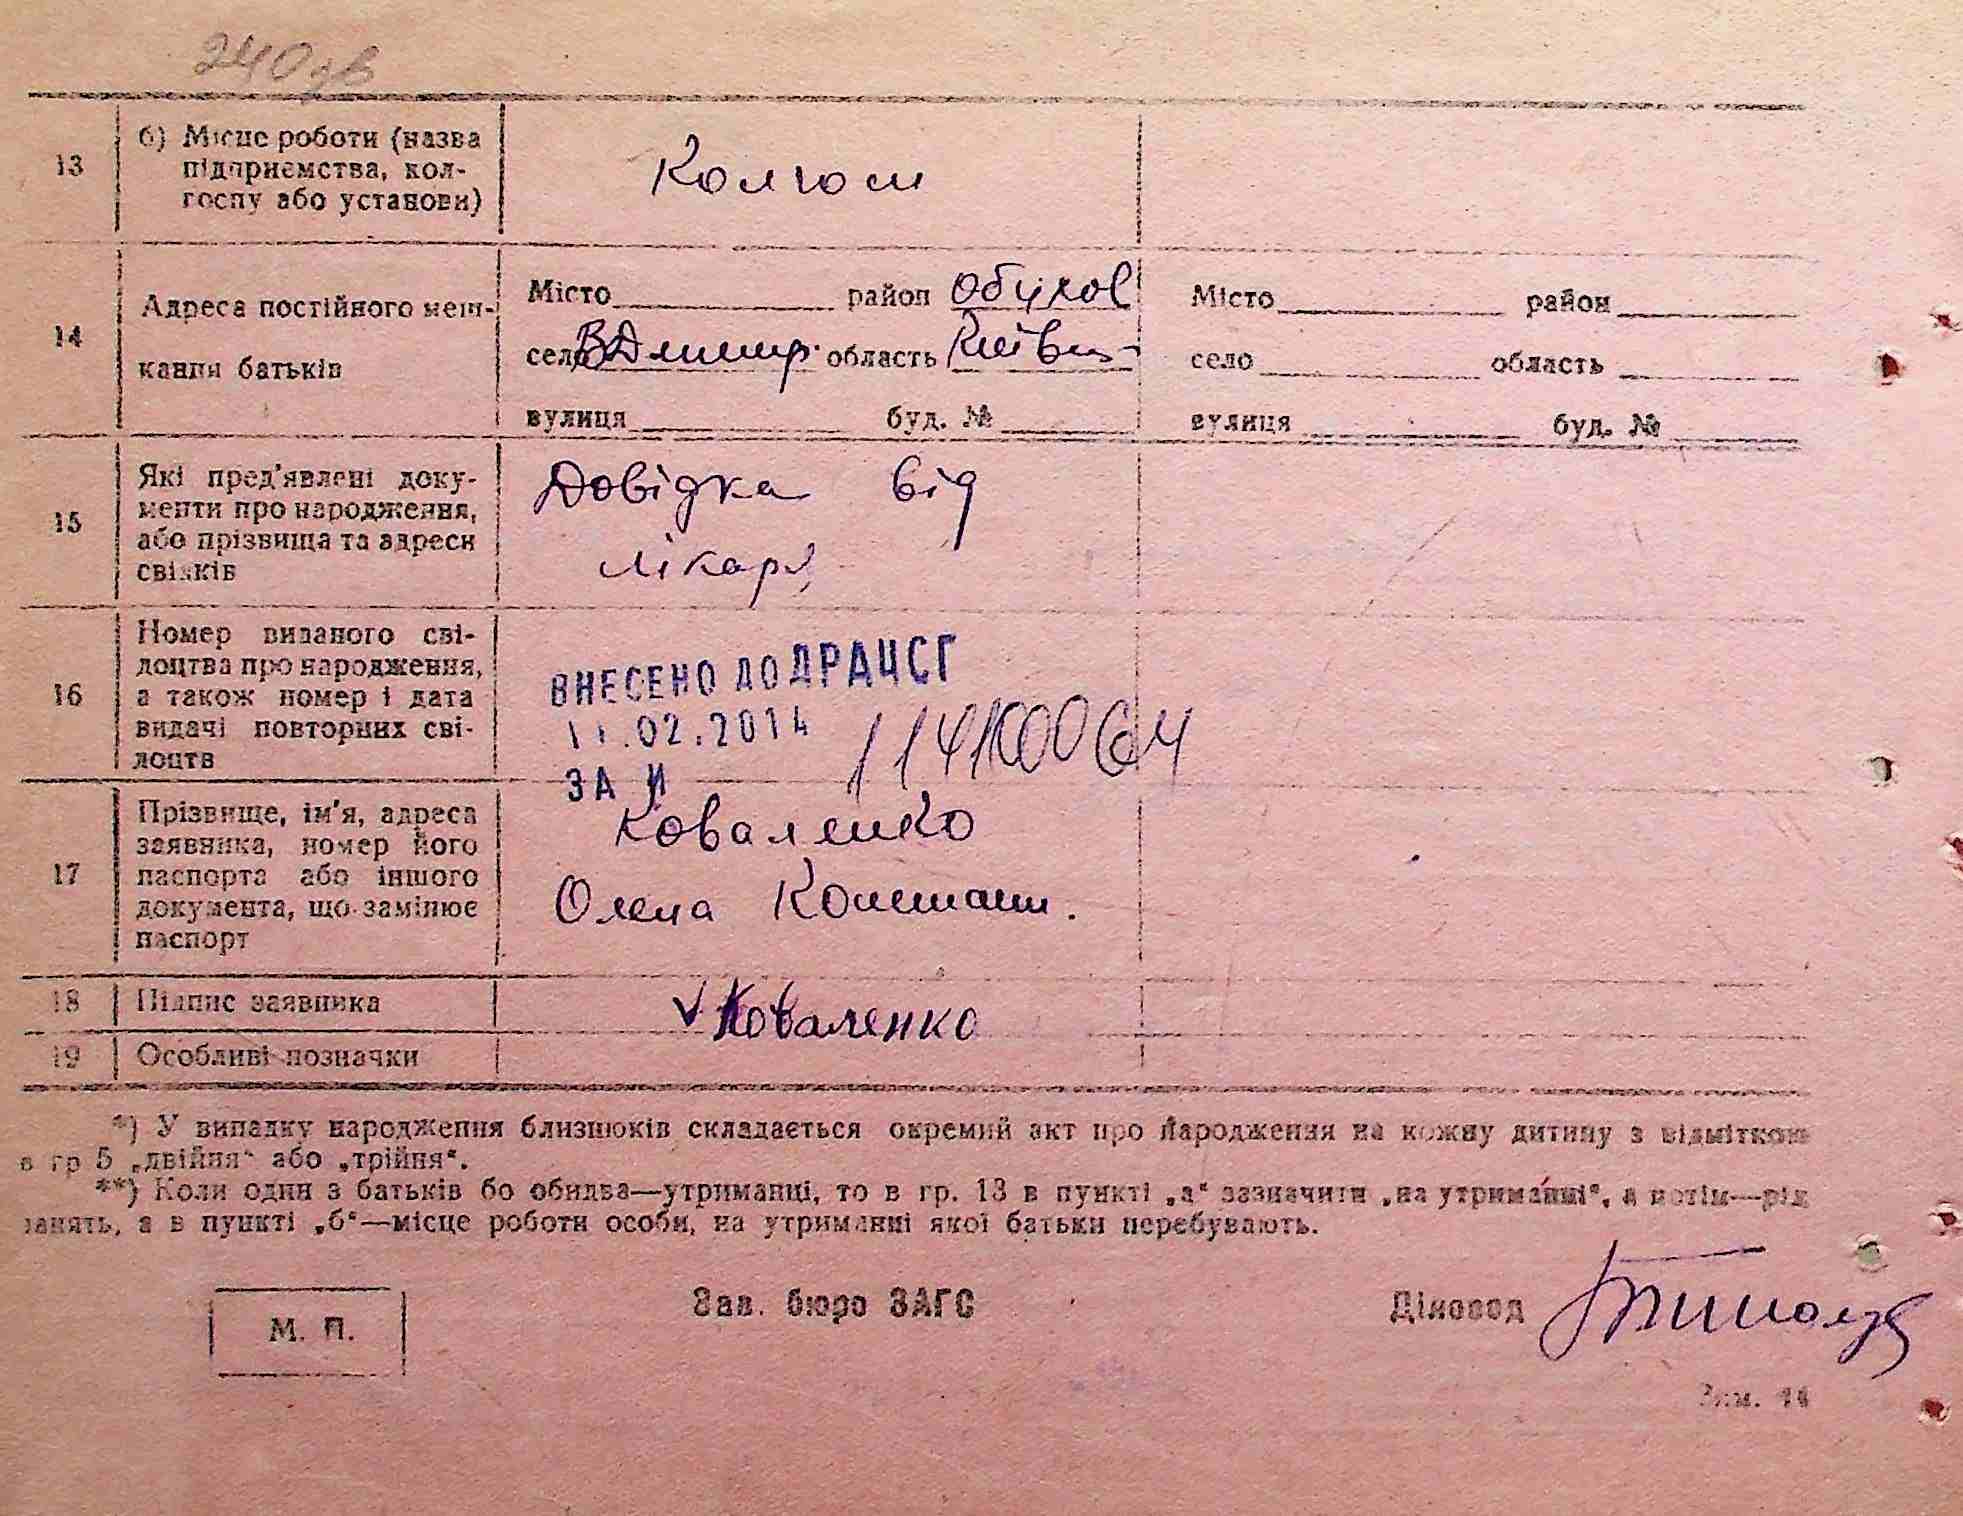 240 зв
13
б) Місце роботи (назва
підприємства, кол-
госпу або установи)
Колгосп
14
Адреса постійного меш-
кання батьків
Місто район Обухов
село ВДмитр. область Київськ
вулиця буд. №
Місто район
село область
вулиця буд. №
15
Які пред'явлені доку-
менти про народження,
або прізвища та адреси
свідків
Довідка від
лікаря
16
Номер виданого сві-
доцтва про народження,
а також номер і дата
видачі повторних сві-
доцтв
ВНЕСЕНО ДО ДРАЦСГ
11.02.2014
ЗА И
17
Прізвище, ім'я, адреса
заявника, номер його
паспорта або іншого
документа, що замінює
паспорт
Коваленко
Олена Констант.
18
Підпис заявника
Коваленко
19
Особливі позначки
*) У випадку народження близнюків складається окремий акт про народження на кожну дитину з відміткою
в гр 5 „двійня“ або „трійня“.
**) Коли один з батьків бо обидва—утриманці, то в гр. 13 в пункті „а“ зазначити „на утриманні“, а потім—рід
занять, а в пункті „б“—місце роботи особи, на утриманні якої батьки перебувають.
М. П.
Зав. бюро ЗАГС
Діловод
Зам. 14